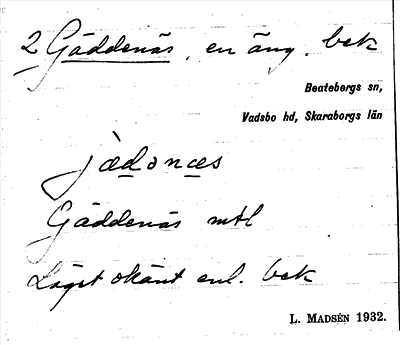 2 Gäddenäs, en äng. bek
Beatebergs sn,
Vadsbo hd, Skaraborgs län
jædonæs
Gäddenäs mtl
Läget okänt enl. bek
L. MADSÉN 1932.